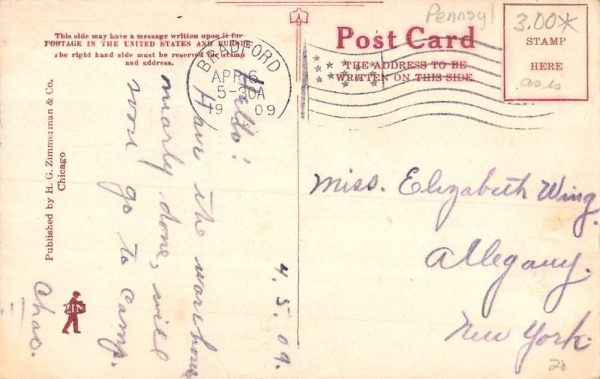 This side may have a message written upon it for
POSTAGE IN THE UNITED STATES AND EUROPE
The right hand side must be reserved for stamp
and address.
Published by H. G. Zimmerman & Co.
Chicago
BRADFORD
APR 6
5-30A
19 09
PA
Pennsy!
Post Card
THE ADDRESS TO BE
WRITTEN ON THIS SIDE.
3.00*
STAMP
HERE
as is
4.5.09.
Hello!
Have the warehouse
nearly done, will
soon go to camp.
Chas.
Miss. Elizabeth Wing.
Allegany.
New York.
20